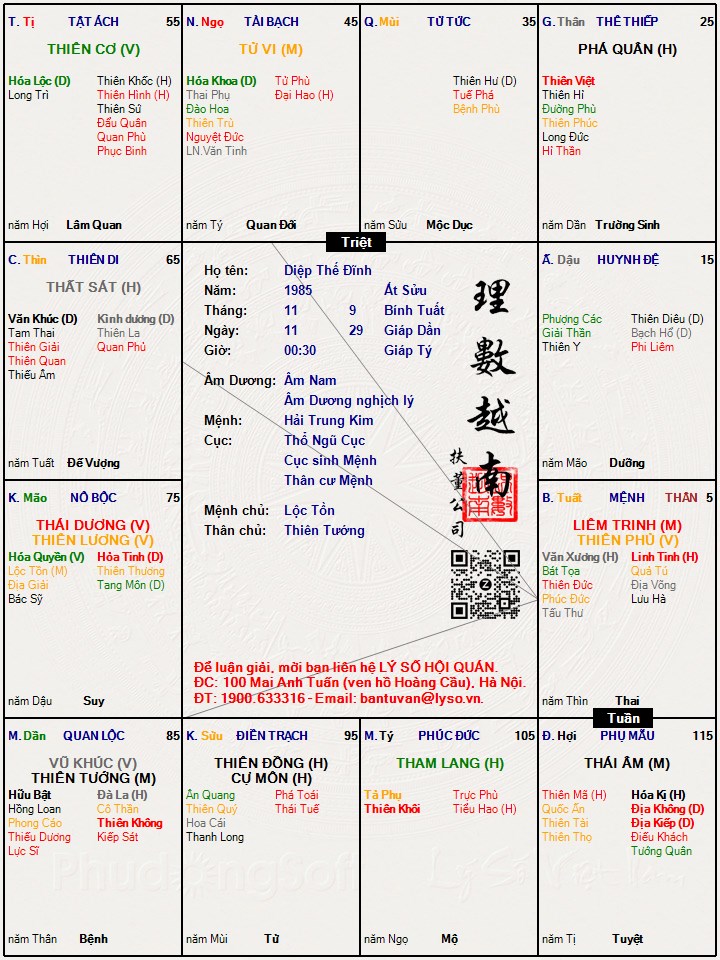 T. Tị TẬT ÁCH 55
THIÊN CƠ (V)
Hóa Lộc (D) Thiên Khốc (H)
Long Trì Thiên Hình (H)
Thiên Sứ
Đẩu Quân
Quan Phù
Phục Binh
năm Hợi Lâm Quan
N. Ngọ TÀI BẠCH 45
TỬ VI (M)
Hóa Khoa (D) Tử Phù
Thai Phụ Đại Hao (H)
Đào Hoa
Thiên Trù
Nguyệt Đức
LN.Văn Tinh
năm Tý Quan Đới
Q. Mùi TỬ TỨC 35
Thiên Hư (D)
Tuế Phá
Bệnh Phù
năm Sửu Mộc Dục
G. Thân THÊ THIẾP 25
PHÁ QUÂN (H)
Thiên Việt
Thiên Hỉ
Đường Phù
Thiên Phúc
Long Đức
Hỉ Thần
năm Dần Trường Sinh
Triệt
C. Thìn THIÊN DI 65
THẤT SÁT (H)
Văn Khúc (D) Kình dương (D)
Tam Thai Thiên La
Thiên Giải Quan Phủ
Thiên Quan
Thiếu Âm
năm Tuất Đế Vượng
Họ tên: Diệp Thế Đĩnh
Năm: 1985 Ất Sửu
Tháng: 11 9 Bính Tuất
Ngày: 11 29 Giáp Dần
Giờ: 00:30 Giáp Tý
Âm Dương: Âm Nam
Âm Dương nghịch lý
Mệnh: Hải Trung Kim
Cục: Thổ Ngũ Cục
Cục sinh Mệnh
Thân cư Mệnh
Mệnh chủ: Lộc Tồn
Thân chủ: Thiên Tướng
理數越南
扶董公司
Để luận giải, mời bạn liên hệ LÝ SỐ HỘI QUÁN.
ĐC: 100 Mai Anh Tuấn (ven hồ Hoàng Cầu), Hà Nội.
ĐT: 1900.633316 - Email: bantuvan@lyso.vn.
Ấ. Dậu HUYNH ĐỆ 15
Phượng Các Thiên Diêu (D)
Giải Thần Bạch Hổ (D)
Thiên Y Phi Liêm
năm Mão Dưỡng
K. Mão NÔ BỘC 75
THÁI DƯƠNG (V)
THIÊN LƯƠNG (V)
Hóa Quyền (V) Hỏa Tinh (D)
Lộc Tồn (M) Thiên Thương
Địa Giải Tang Môn (D)
Bác Sỹ
năm Dậu Suy
B. Tuất MỆNH THÂN 5
LIÊM TRINH (M)
THIÊN PHỦ (V)
Văn Xương (H) Linh Tinh (H)
Bát Tọa Quả Tú
Thiên Đức Địa Võng
Phúc Đức Lưu Hà
Tấu Thư
năm Thìn Thai
Tuần
M. Dần QUAN LỘC 85
VŨ KHÚC (V)
THIÊN TƯỚNG (M)
Hữu Bật Đà La (H)
Hồng Loan Cô Thần
Phong Cáo Thiên Không
Thiếu Dương Kiếp Sát
Lực Sĩ
năm Thân Bệnh
K. Sửu ĐIỀN TRẠCH 95
THIÊN ĐỒNG (H)
CỰ MÔN (H)
Ân Quang Phá Toái
Thiên Quý Thái Tuế
Hoa Cái
Thanh Long
năm Mùi Tử
M. Tý PHÚC ĐỨC 105
THAM LANG (H)
Tả Phụ Trực Phù
Thiên Khôi Tiểu Hao (H)
năm Ngọ Mộ
Đ. Hợi PHỤ MẪU 115
THÁI ÂM (M)
Thiên Mã (H) Hóa Kị (H)
Quốc Ấn Địa Không (D)
Thiên Tài Địa Kiếp (D)
Thiên Thọ Điếu Khách
Tướng Quân
năm Tị Tuyệt
PhuđổngSoft